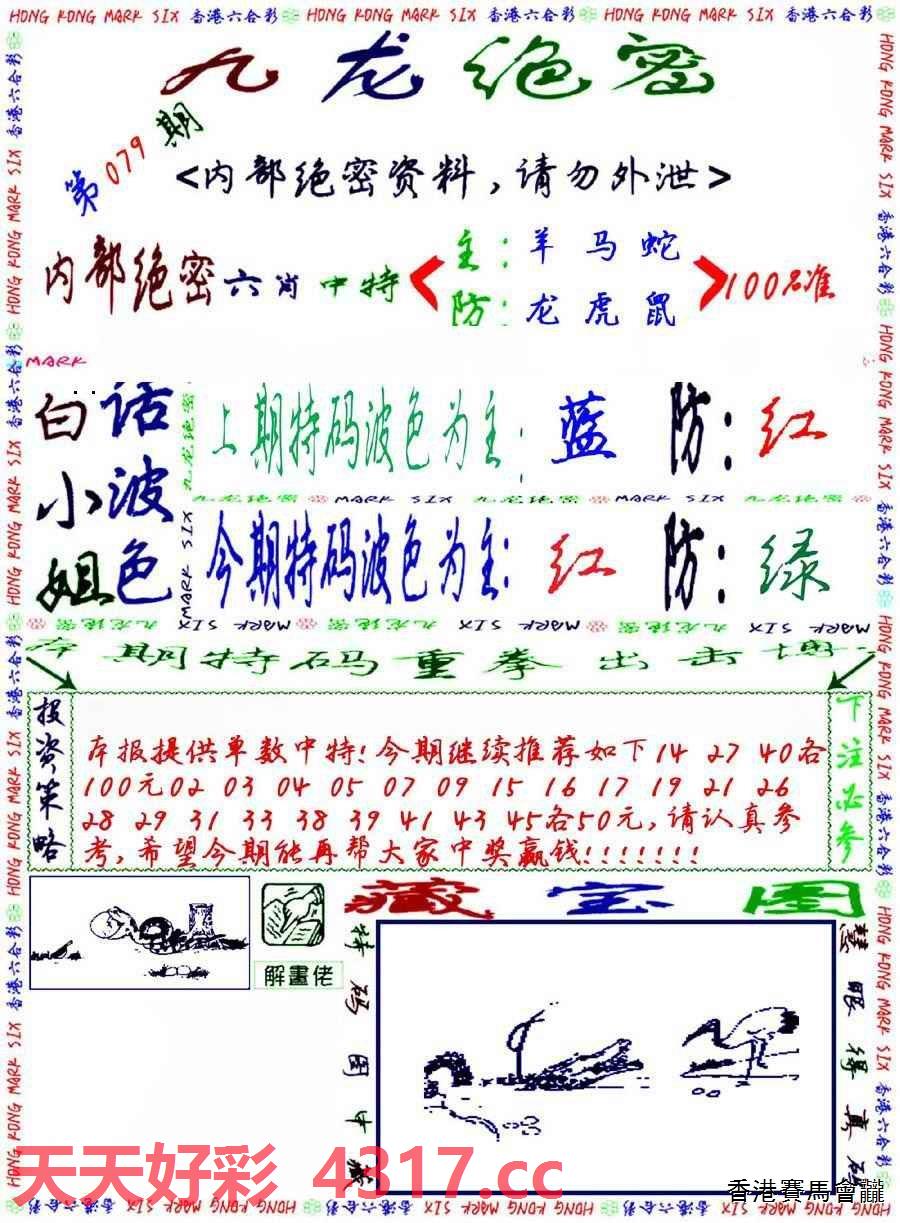 HONG KONG MARK SIX 香港六合彩 HONG KONG MARK SIX 香港六合彩 HONG KONG MARK SIX 香港六合彩
九龙绝密
第079期
<内部绝密资料,请勿外泄>
内部绝密六肖中特
主:羊马蛇
防:龙虎鼠
100%准
MARK
白小姐
话波色
上期特码波色为主:蓝 防:红
九龙绝密 MARK SIX 九龙绝密 MARK SIX 九龙绝密
今期特码波色为主:红 防:绿
九龙绝密
MARK SIX
期特码重拳出击
投资策略
本报提供单数中特!今期继续推荐如下14 27 40各
100元02 03 04 05 07 09 15 16 17 19 21 26
28 29 31 33 38 39 41 43 45各50元,请认真参
考,希望今期能再帮大家中奖赢钱!!!!!!!
下注必参
解畫佬
藏宝图
特码图中
慧眼得真
天天好彩 4317.cc
香港賽馬會